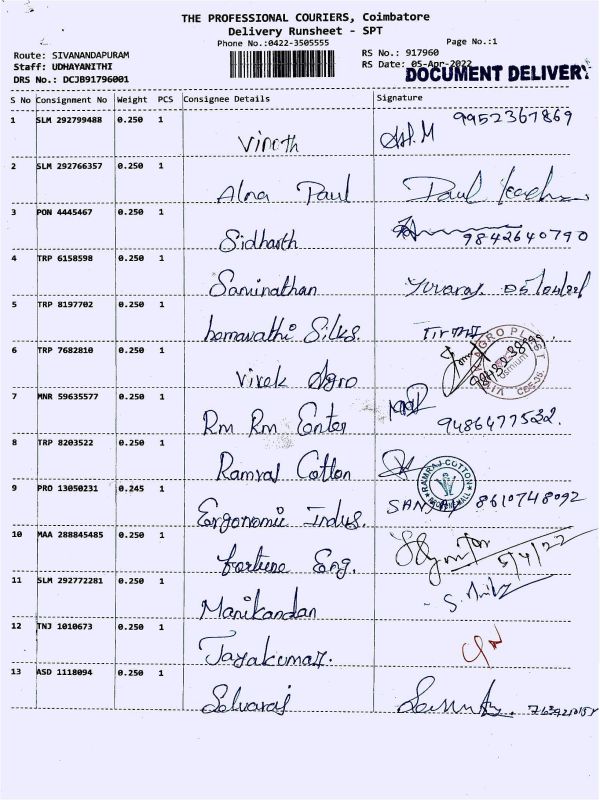 THE PROFESSIONAL COURIERS, Coimbatore
Delivery Runsheet - SPT
Phone No.:0422-3505555 Page No.:1
Route: SIVANANDAPURAM RS No.: 917960
Staff: UDHAYANITHI RS Date: 05-Apr-2022
DRS No.: DCJB91796001 DOCUMENT DELIVERY
S No Consignment No Weight PCS Consignee Details Signature
1 SLM 292799488 0.250 1 9952367869
Vineth
2 SLM 292766357 0.250 1
Alna Paul Paul
3 PON 4445467 0.250 1
Sidharth 9842640790
4 TRP 6158598 0.250 1
Saminathan Yuvaraj 05/04/22
5 TRP 8197702 0.250 1
hemavathi Silks.
6 TRP 7682810 0.250 1
Vivek Agro
7 MNR 59635577 0.250 1
Rm Rm Enter 9486477522.
8 TRP 8203522 0.250 1
Ramraj Cotton RAMRAJ COTTON
9 PRO 13050231 0.245 1
Ergonomic Indus. SANJAY 8610748092
10 MAA 288845485 0.250 1
fortune Eng. 5/4/22
11 SLM 292772281 0.250 1
Manikandan
12 TNJ 1010673 0.250 1
Jayakumar.
13 ASD 1118094 0.250 1
Selvaraj